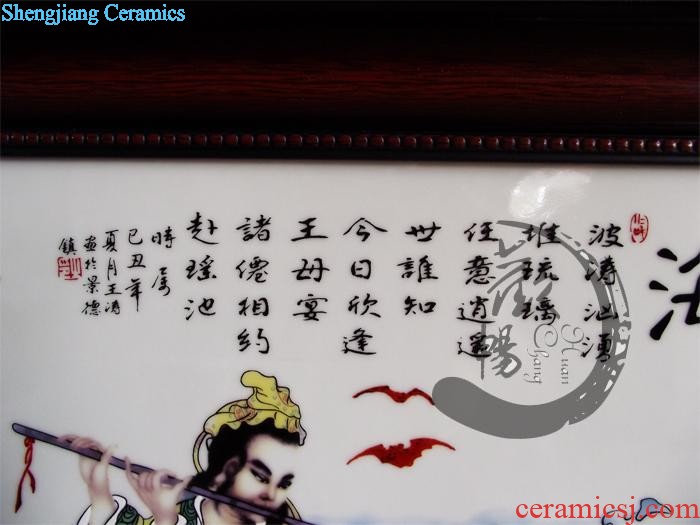 Shengjiang Ceramics
海
波涛汹湧
堆琉璃
任意逍遥
世誰知
今日欣逢
王母宴
諸僊相約
赴瑶池
時属
己丑年
夏月王涛
画於景德
鎮
觀暢
Huan
Chang
ceramicsj.com